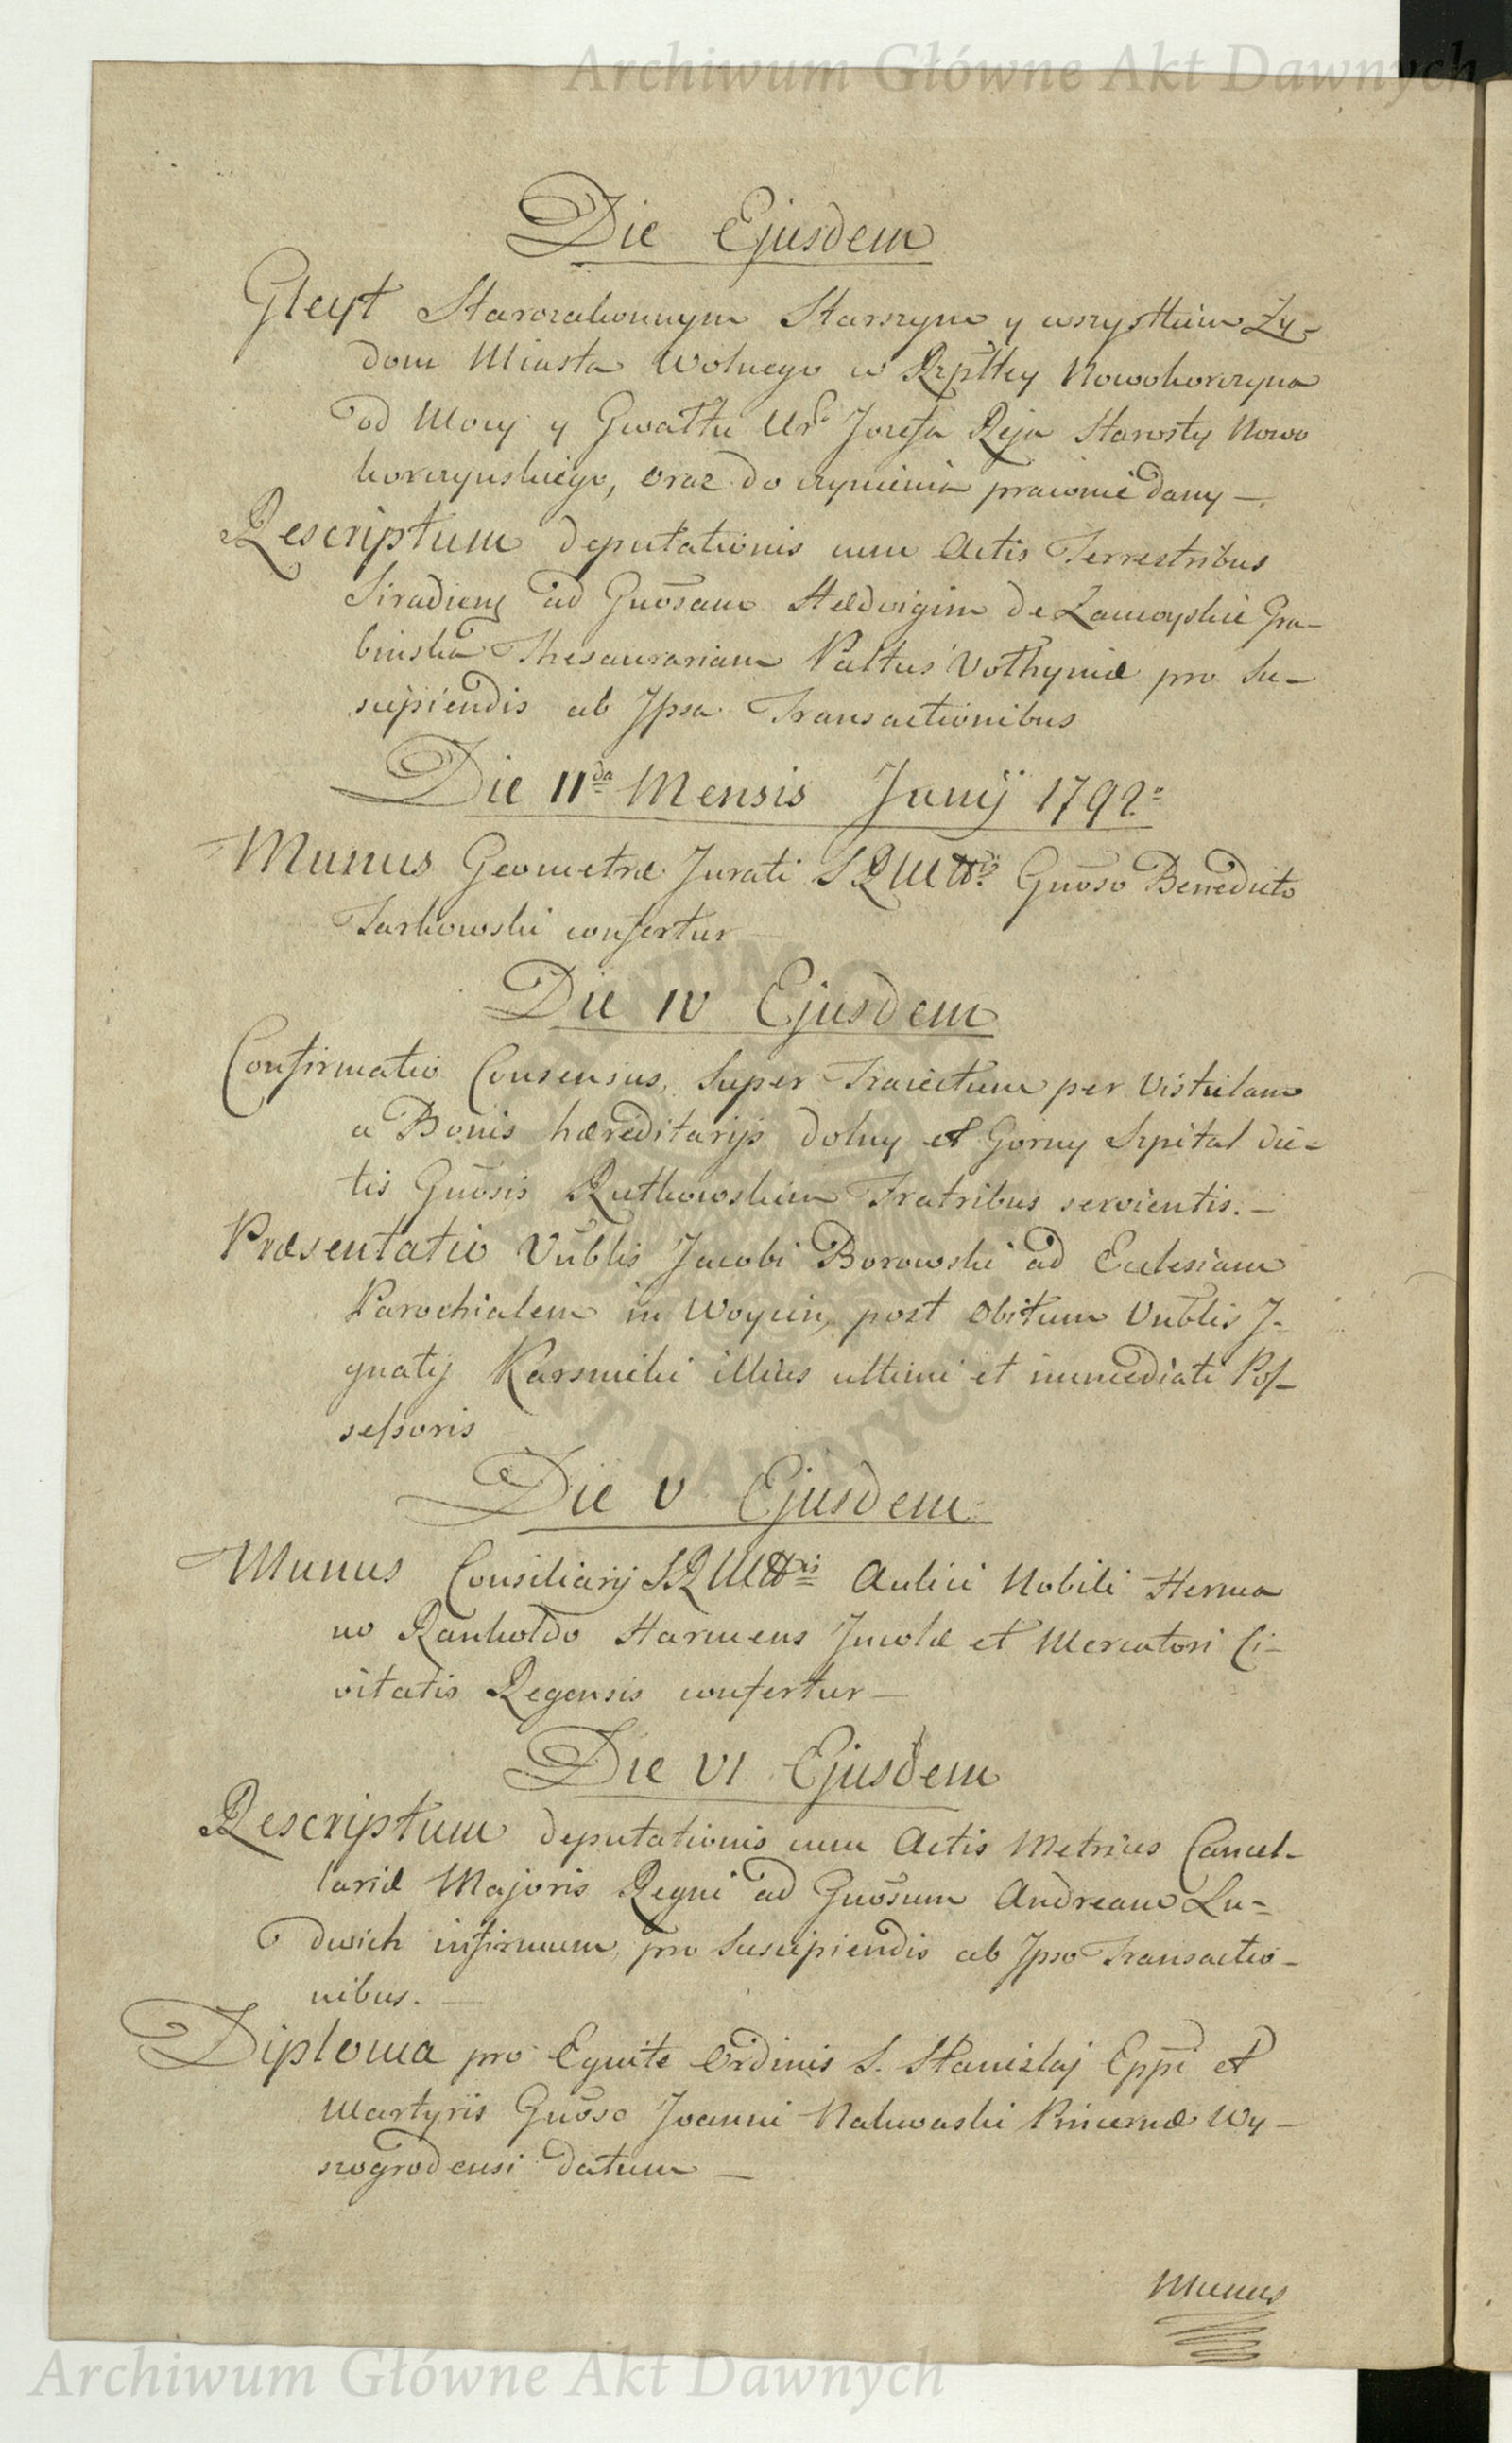 Archiwum Główne Akt Dawnych
Die Ejusdem
Gleyt Starozakonnym Starszym y wszystkim Ży-
dom Miasta Wolnego w Rzpltey Nowokorczyna
od Mocy y Gwałtu Ur° Jozefa Reja Starosty Nowo
korczynskiego, oraz do czynienia prawnie dany —
Rescriptum deputationis cum Actis Terrestribus
Siradiens ad Gnosam Hedvigim de Zamoyskie Gra-
binska Thesaurariam Paltus Volhyniæ pro Su-
scipiendis ab Ipsa Transactionibus
Die IIda Mensis Junij 1792°
Munus Geometræ Jurati S R Mttis Gnoso Benedicto
Tarkowski confertur
Die IV Ejusdem
Confirmatio Consensus, Super Traiectum per Vistulam
a Bonis hæreditarijs dolny et Gorny Szpital dic-
tis Gnosis Rutkowskim Fratribus servientis. —
Præsentatio Vnblis Jacobi Borowski ad Eclesiam
Parochialem in Woycin, post Obitum Vnblis J-
gnatij Karsnicki illius ultimi et immediati Pos-
sessoris
Die V Ejusdem
Munus Consiliarij S R Mttis Aulici Nobili Herma
no Rankoldo Harmens Jncolæ et Mercatori Ci-
vitatis Regensis confertur —
Die VI Ejusdem
Rescriptum deputationis cum Actis Metrices Cancel-
lariæ Majoris Regni ad Gnosum Andream Lu-
dwich infirmum, pro Suscipiendis ab Ipso Transactio-
nibus. —
Diploma pro Equite Ordinis S. Stanislaj Eppi et
Martyris Gnoso Joanni Nakwaski Pincernæ Wy-
szogrodensi datum —
Munus
Archiwum Główne Akt Dawnych